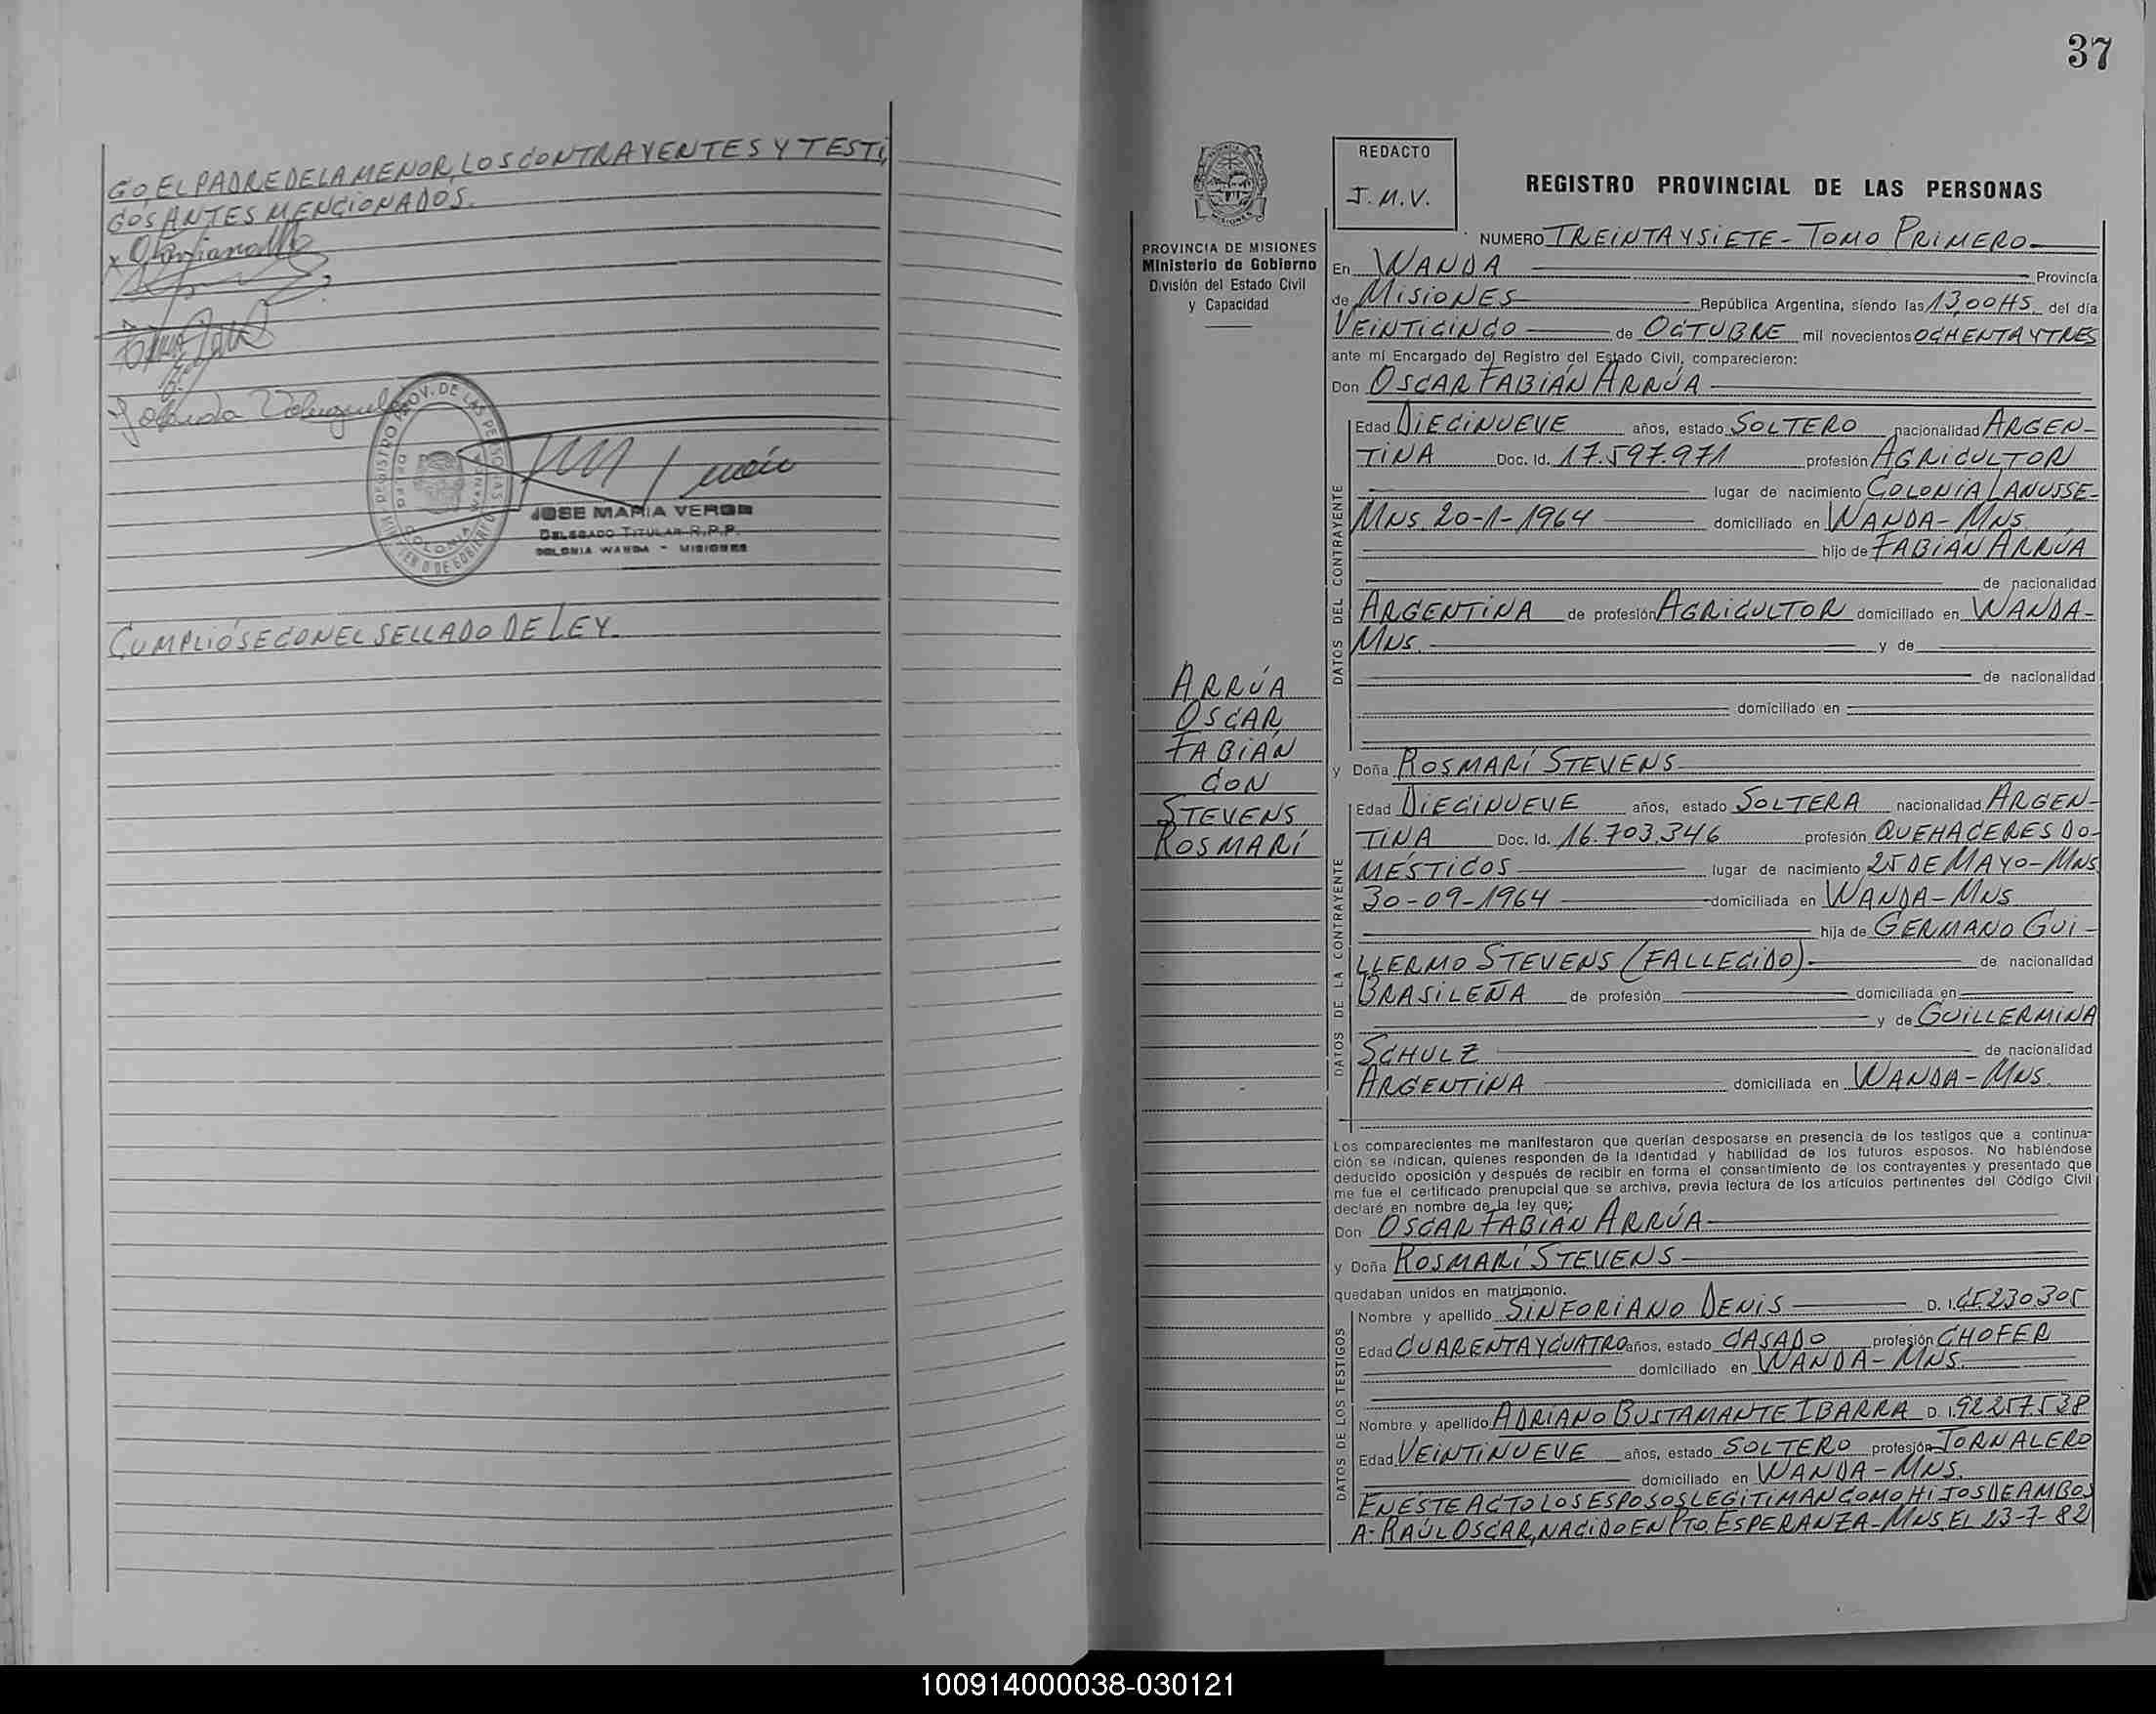 GO, EL PADRE DE LA MENOR, LOS CONTRAYENTES Y TESTI,
GOS ANTES MENCIONADOS.
JOSE MARIA VERON
DELEGADO TITULAR R.P.P.
COLONIA WANDA - MISIONES
CUMPLIÓSE CON EL SELLADO DE LEY.
37
REDACTO
J.M.V.
REGISTRO PROVINCIAL DE LAS PERSONAS
PROVINCIA DE MISIONES
Ministerio de Gobierno
División del Estado Civil
y Capacidad
ARRÚA
OSCAR
FABIÁN
CON
STEVENS
ROSMARÍ
NUMERO TREINTA Y SIETE - TOMO PRIMERO
En WANDA Provincia
de MISIONES República Argentina, siendo las 13,00 HS. del día
VEINTICINCO de OCTUBRE mil novecientos OCHENTA Y TRES
ante mí Encargado del Registro del Estado Civil, comparecieron:
Don OSCAR FABIÁN ARRÚA
DATOS DEL CONTRAYENTE
Edad DIECINUEVE años, estado SOLTERO nacionalidad ARGEN-
TINA Doc. Id. 17.597.971 profesión AGRICULTOR
lugar de nacimiento COLONIA LANUSSE-
MNS. 20-1-1964 domiciliado en WANDA-MNS
hijo de FABIÁN ARRÚA
de nacionalidad
ARGENTINA de profesión AGRICULTOR domiciliado en WANDA-
MNS. y de
de nacionalidad
domiciliado en
y Doña ROSMARÍ STEVENS
DATOS DE LA CONTRAYENTE
Edad DIECINUEVE años, estado SOLTERA nacionalidad ARGEN-
TINA Doc. Id. 16.703.346 profesión QUEHACERES DO-
MÉSTICOS lugar de nacimiento 25 DE MAYO-MNS
30-09-1964 domiciliada en WANDA-MNS
hija de GERMANO GUI-
LLERMO STEVENS (FALLECIDO) de nacionalidad
BRASILEÑA de profesión domiciliada en
y de GUILLERMINA
SCHULZ de nacionalidad
ARGENTINA domiciliada en WANDA-MNS.
Los comparecientes me manifestaron que querían desposarse en presencia de los testigos que a continua-
ción se indican, quienes responden de la identidad y habilidad de los futuros esposos. No habiéndose
deducido oposición y después de recibir en forma el consentimiento de los contrayentes y presentado que
me fue el certificado prenupcial que se archiva, previa lectura de los artículos pertinentes del Código Civil
declaré en nombre de la ley que:
Don OSCAR FABIÁN ARRÚA
y Doña ROSMARÍ STEVENS
quedaban unidos en matrimonio.
DATOS DE LOS TESTIGOS
Nombre y apellido SINFORIANO DENIS D. I. CI.230305
Edad CUARENTA Y CUATRO años, estado CASADO profesión CHOFER
domiciliado en WANDA-MNS.
Nombre y apellido ADRIANO BUSTAMANTE IBARRA D. I. 92257.538
Edad VEINTINUEVE años, estado SOLTERO profesión JORNALERO
domiciliado en WANDA-MNS.
EN ESTE ACTO LOS ESPOSOS LEGITIMAN COMO HIJOS DE AMBOS
A: RAÚL OSCAR, NACIDO EN PTO. ESPERANZA-MNS. EL 23-7-82
100914000038-030121